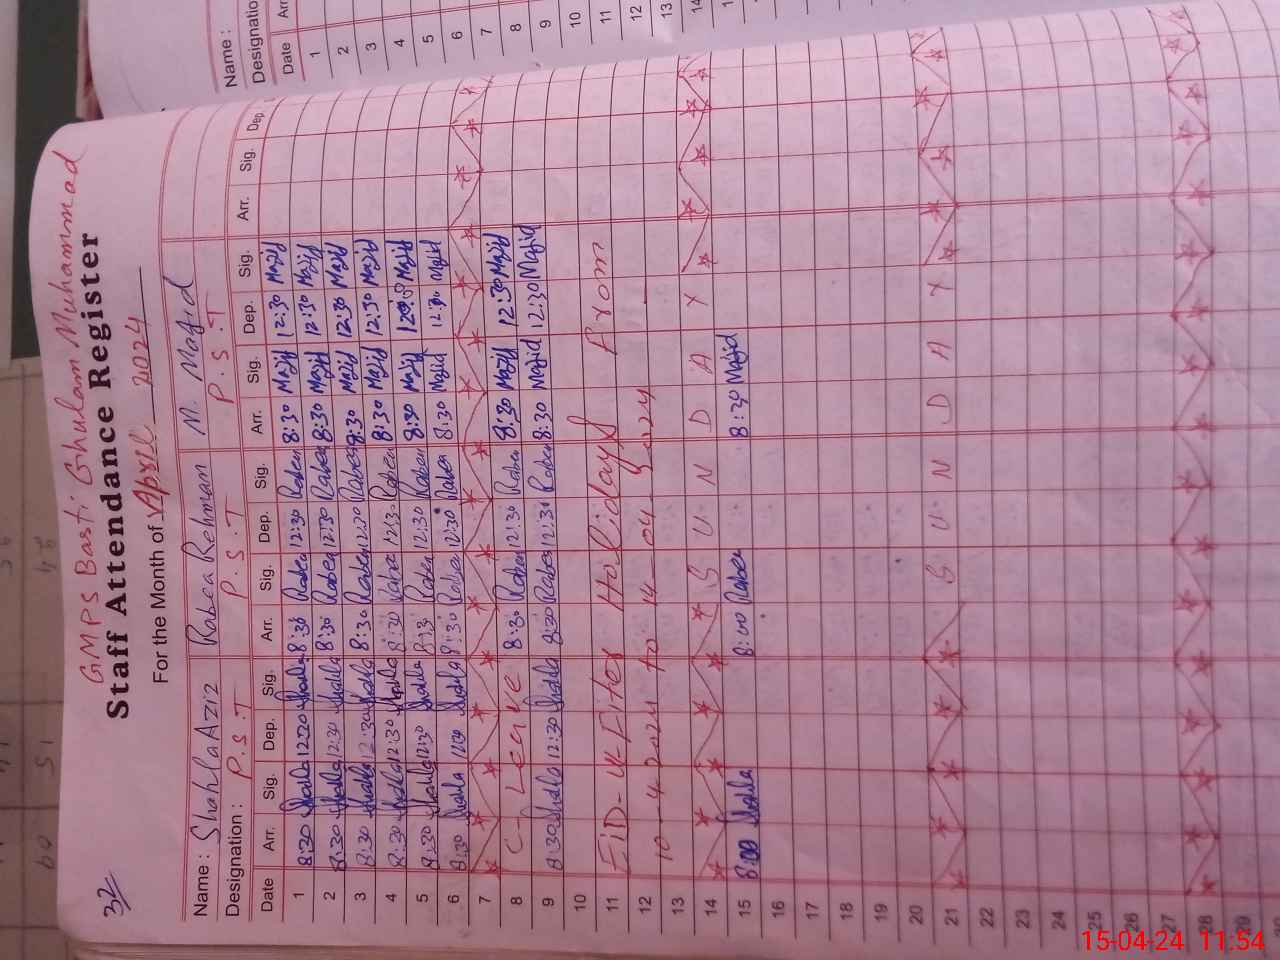 32
GMPS Basti Ghulam Muhammad
Staff Attendance Register
For the Month of April 2024
Name : Shahla Aziz Rabea Rehman M. Majid
Designation : P.S.T P.S.T P.S.T
Date Arr. Sig. Dep. Sig. Arr. Sig. Dep. Sig. Arr. Sig. Dep. Sig. Arr. Sig. Dep.
1 8:30 Shahla 12:30 Shahla 8:30 Rabea 12:30 Rabea 8:30 Majid 12:30 Majid
2 8:30 Shahla 12:30 Shahla 8:30 Rabea 12:30 Rabea 8:30 Majid 12:30 Majid
3 8:30 Shahla 12:30 Shahla 8:30 Rabea 12:30 Rabea 8:30 Majid 12:30 Majid
4 8:30 Shahla 12:30 Shahla 8:30 Rabea 12:30 Rabea 8:30 Majid 12:30 Majid
5 8:30 Shahla 12:30 Shahla 8:30 Rabea 12:30 Rabea 8:30 Majid Majid
6 8:30 Shahla 12:30 Shahla 8:30 Rabea 12:30 Rabea 8:30 Majid 12:30 Majid
7
8 C - Leave 8:30 Rabea 12:30 Rabea 8:30 Majid 12:30 Majid
9 8:30 Shahla 12:30 Shahla 8:30 Rabea 12:30 Rabea 8:30 Majid 12:30 Majid
10
11 EiD-U-Fiter Holidays From
12 10-4-2024 to 14-04-2024
13
14 S U N D A Y
15 8:00 Shahla 8:00 Rabea 8:30 Majid
16
17
18
19
20
21 S U N D A Y
22
23
24
25
26
27
28
29
Name :
Designatio
Date Arr
1
2
3
4
5
6
7
8
9
10
11
12
13
14
15-04-24 11:54